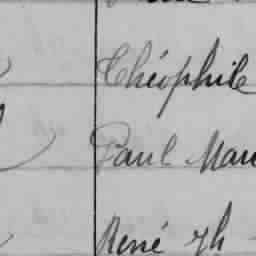 Théophile
Paul Mau
René Th